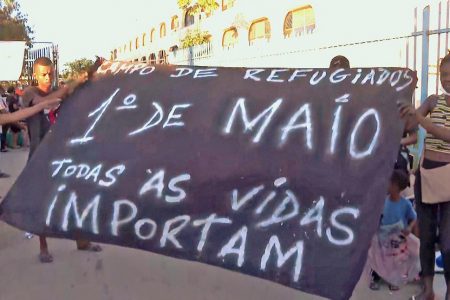 CAMPO DE REFUGIADOS
1º DE MAÍO
TODAS AS VIDAS
IMPORTAM